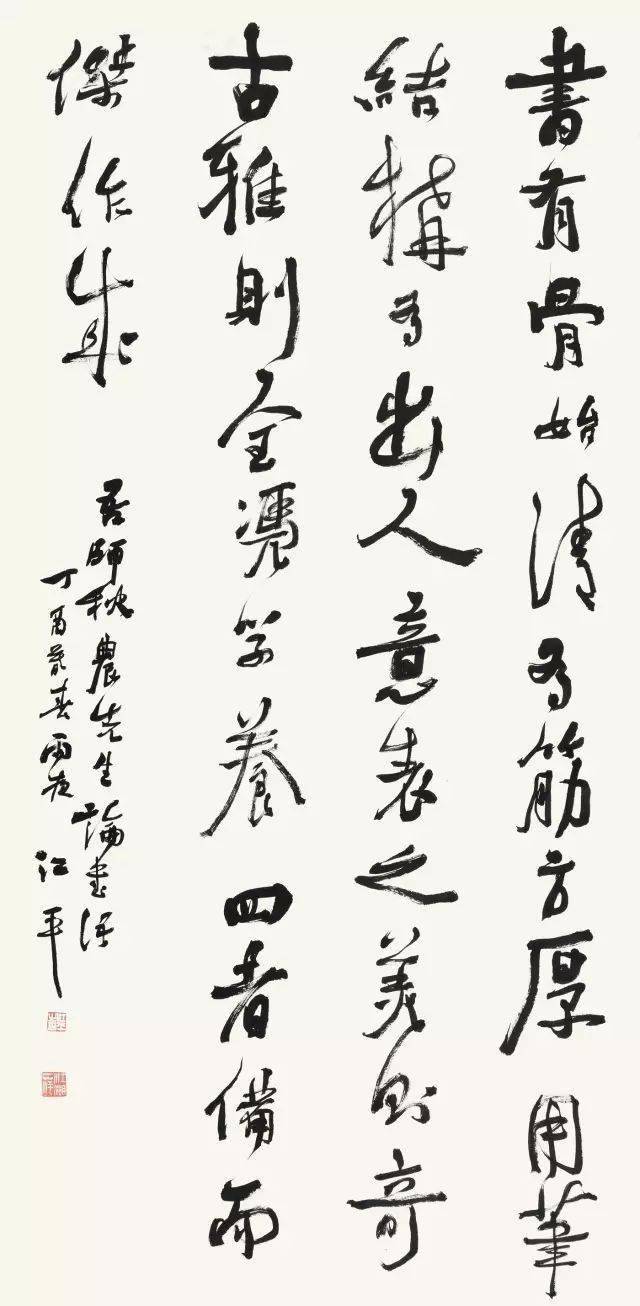 書有骨始清有筋方厚用筆
結構有出人意表之美則奇
古雅則全憑學養四者備而
傑作成
吾師秋農先生論書語
丁酉春雨夜江平